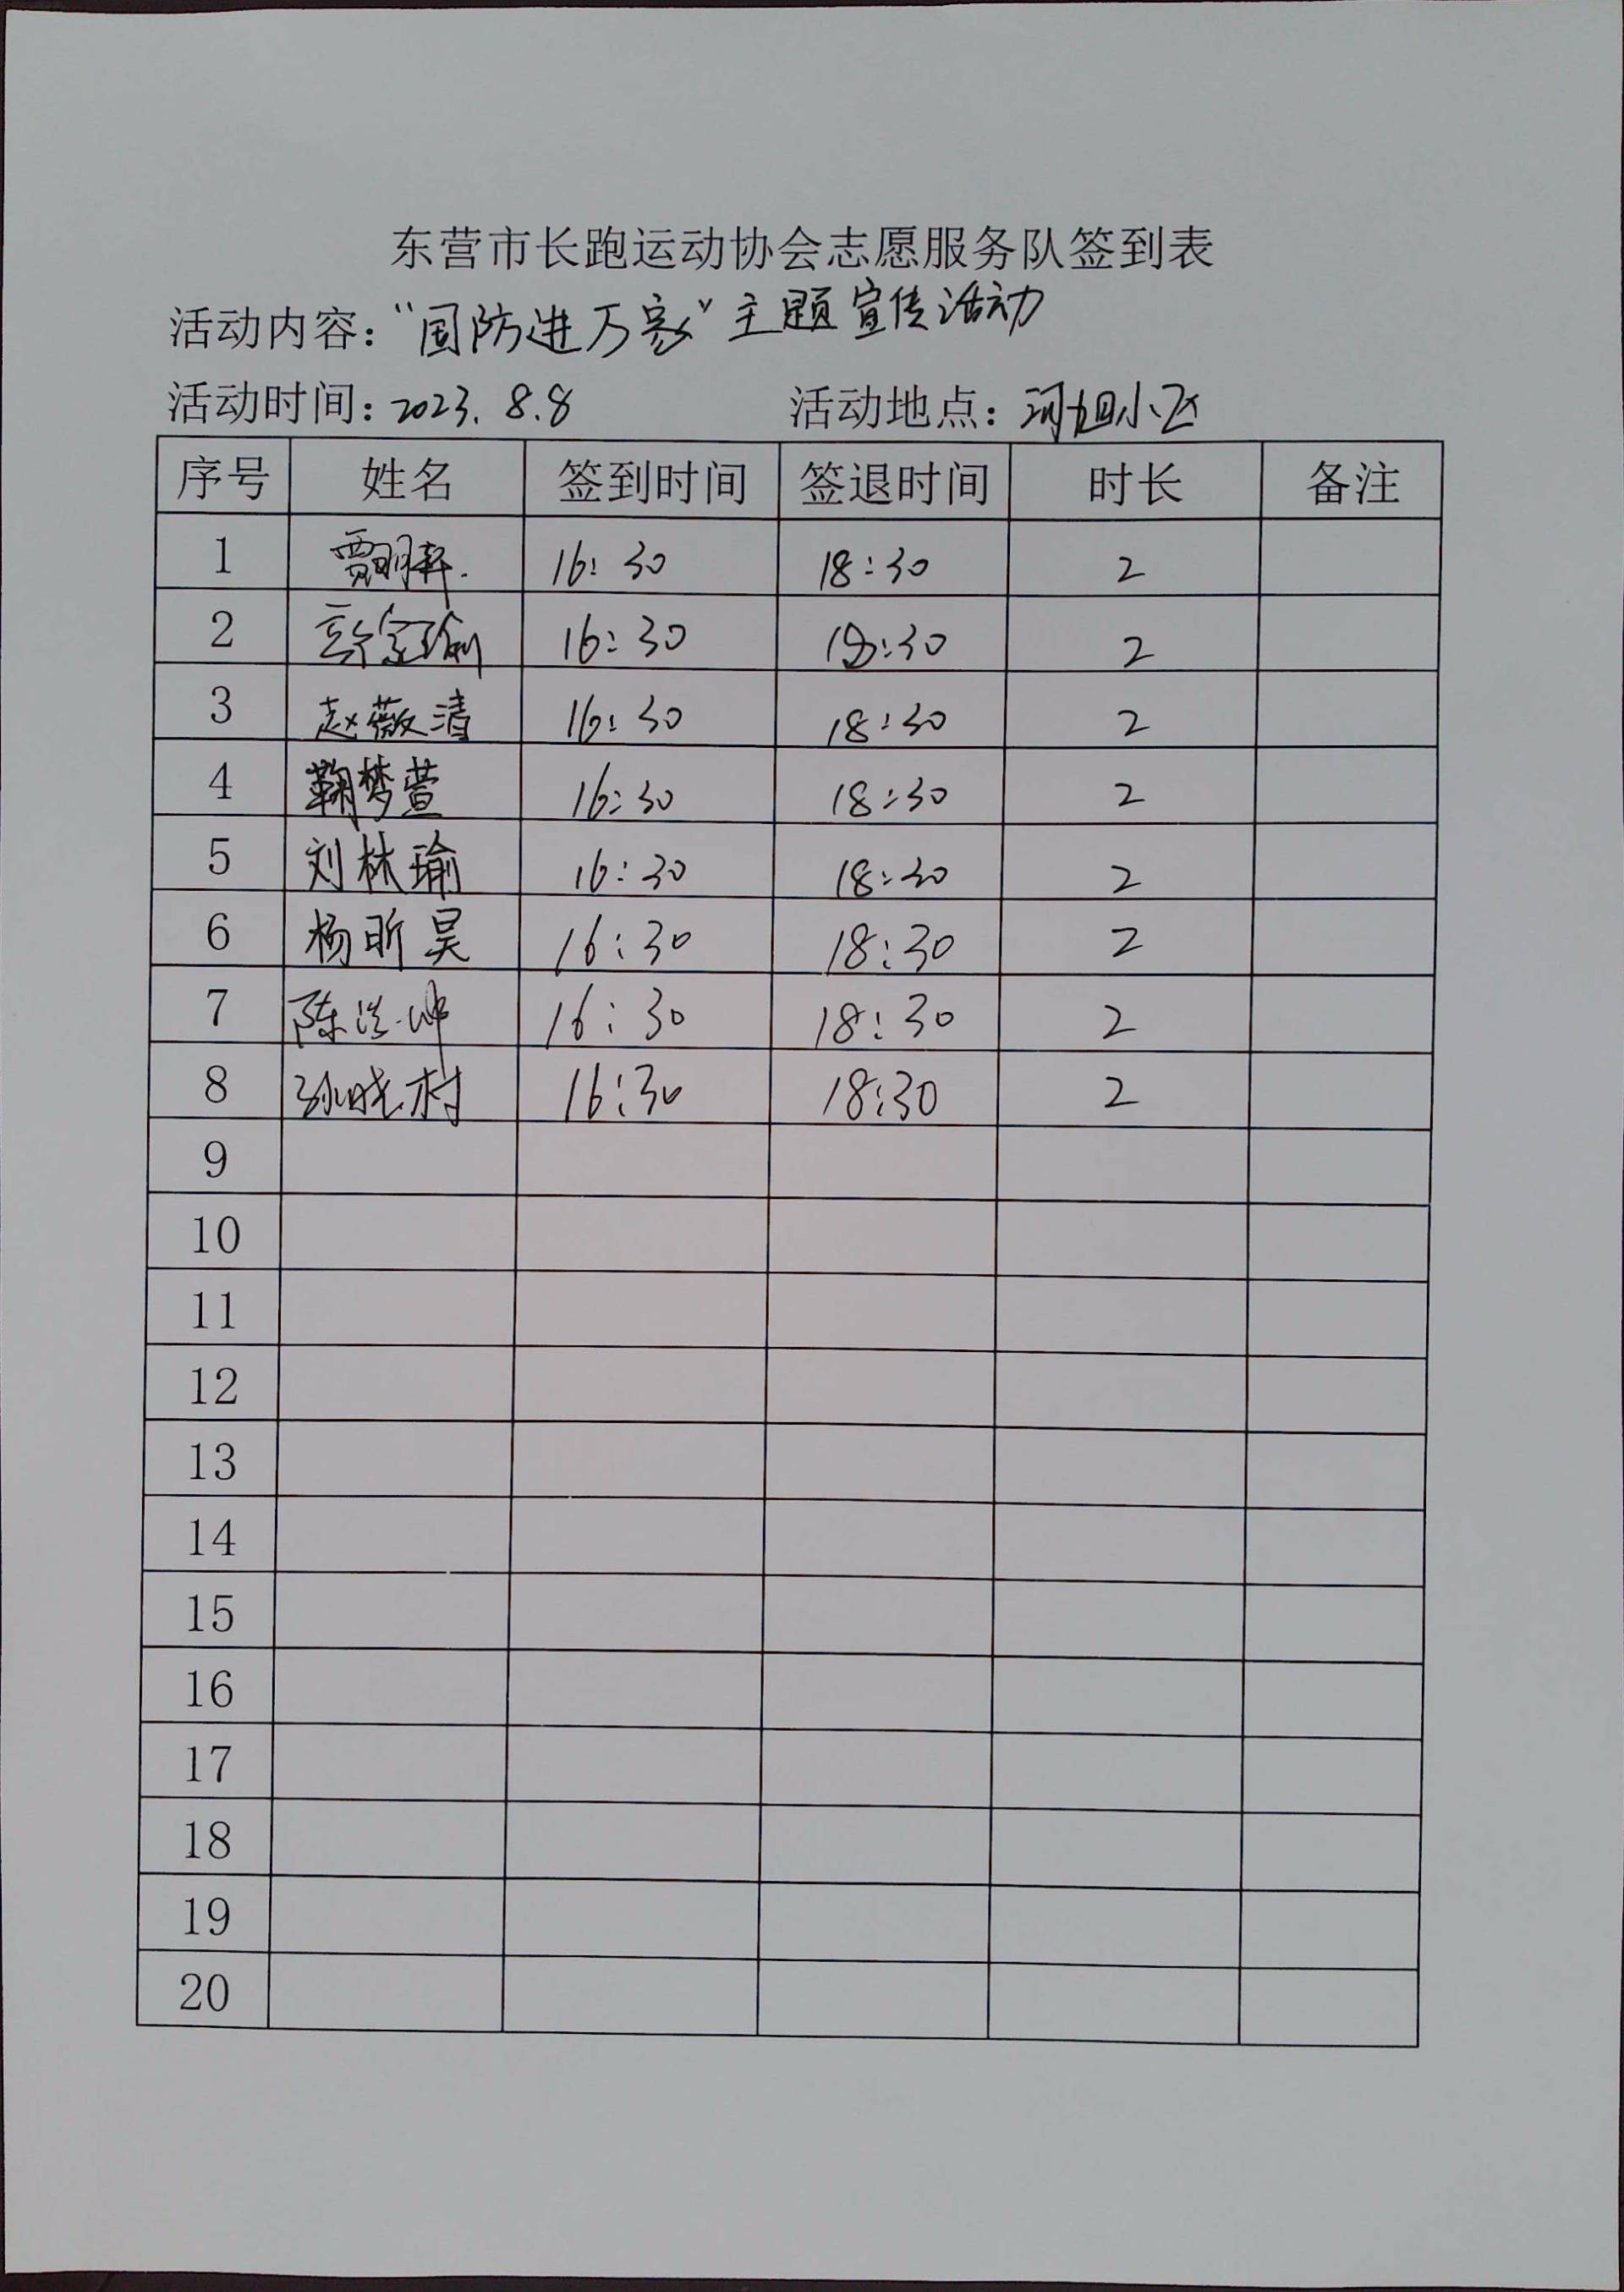 东营市长跑运动协会志愿服务队签到表
活动内容：“国防进万家”主题宣传活动
活动时间：2023.8.8 活动地点：河旭小区
序号 姓名 签到时间 签退时间 时长 备注
1 贾明 16:30 18:30 2
2 16:30 18:30 2
3 赵薇清 16:30 18:30 2
4 鞠梦萱 16:30 18:30 2
5 刘林瑜 16:30 18:30 2
6 杨昕昊 16:30 18:30 2
7 陈 16:30 18:30 2
8 孙晓村 16:30 18:30 2
9
10
11
12
13
14
15
16
17
18
19
20